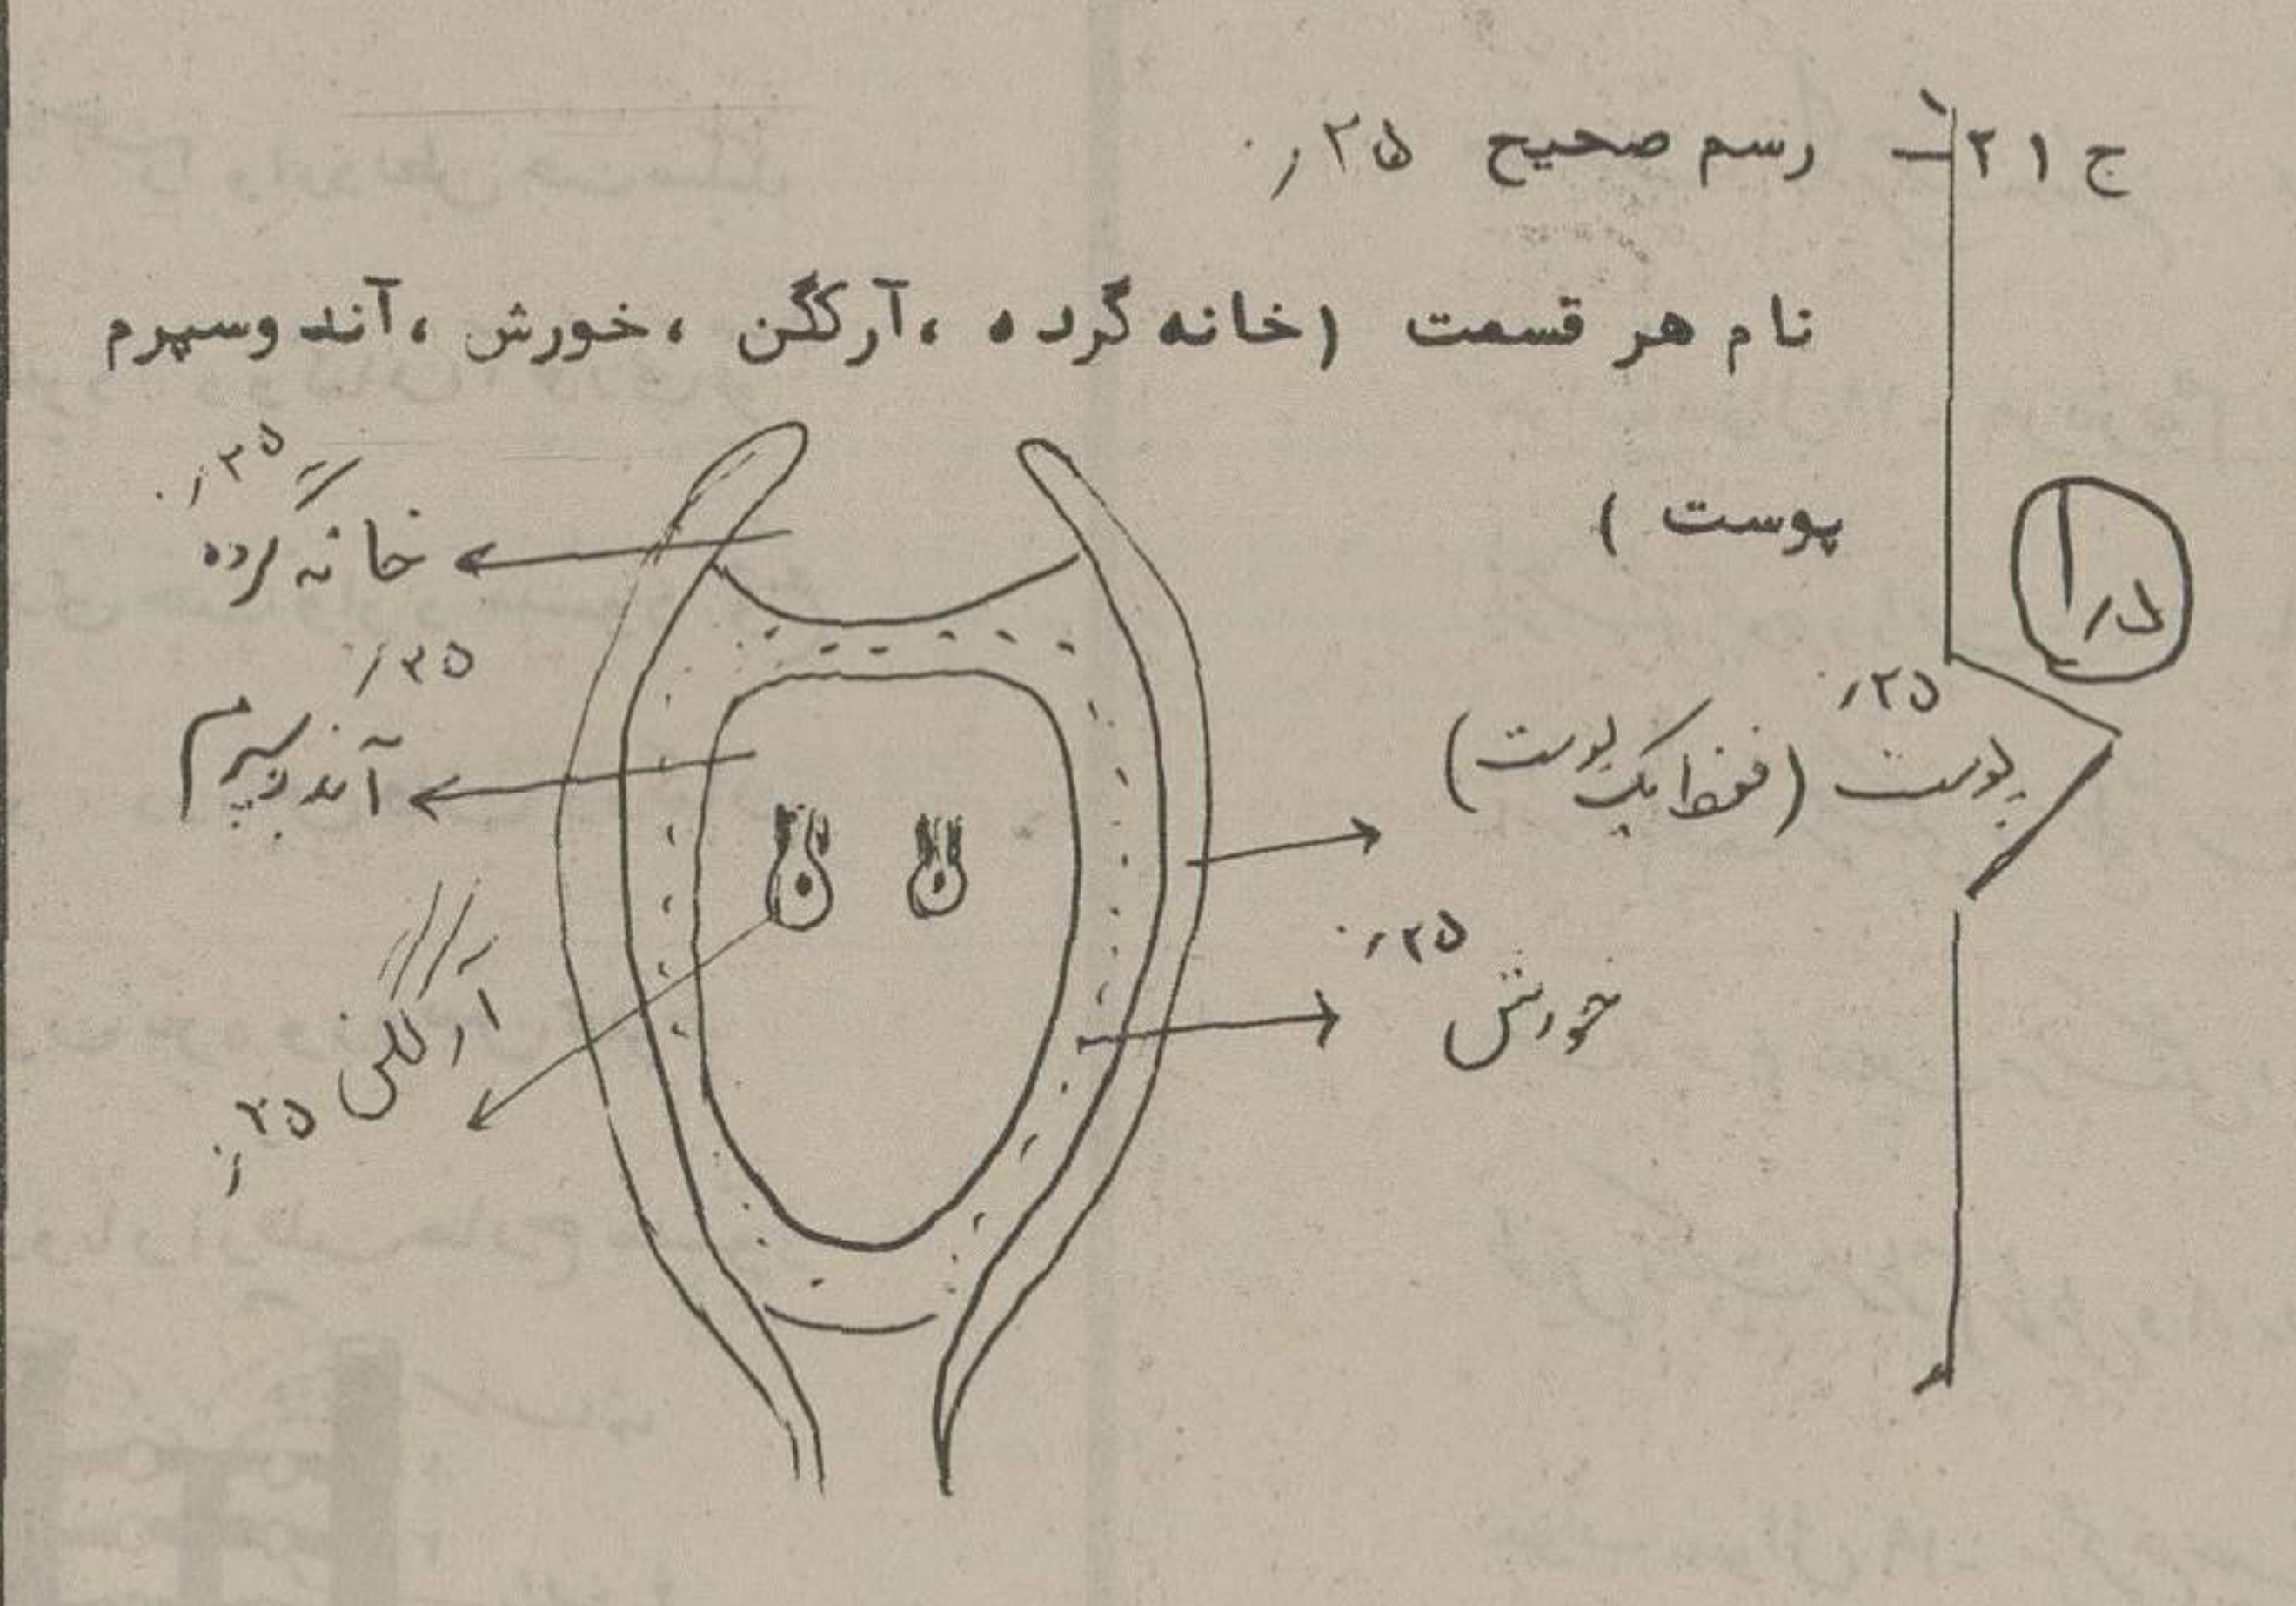 ج ۲۱- رسم صحیح ۰٫۲۵
نام هر قسمت (خانه گرده ، آرکگن ، خورش ، آندوسپرم
پوست )
۱٫۵
۰٫۲۵
خانه گرده
۰٫۲۵
آندوسپرم
آرکگن ۰٫۲۵
۰٫۲۵
پوست (فقط یک پوست)
۰٫۲۵
خورش